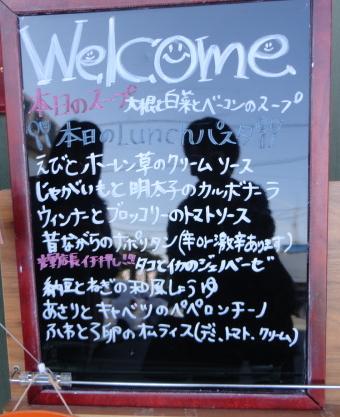 Welcome
本日のスープ 大根と白菜とベーコンのスープ
本日のLunchパスタ
えびとホーレン草のクリームソース
じゃがいもと明太子のカルボナーラ
ウィンナーとブロッコリーのトマトソース
昔ながらのナポリタン(辛or激辛あります)
店長イチ押し!!! タコとイカのジェノベーゼ
納豆とねぎの和風しょうゆ
あさりとキャベツのペペロンチーノ
ふわとろ卵のオムライス(デミ、トマト、クリーム)